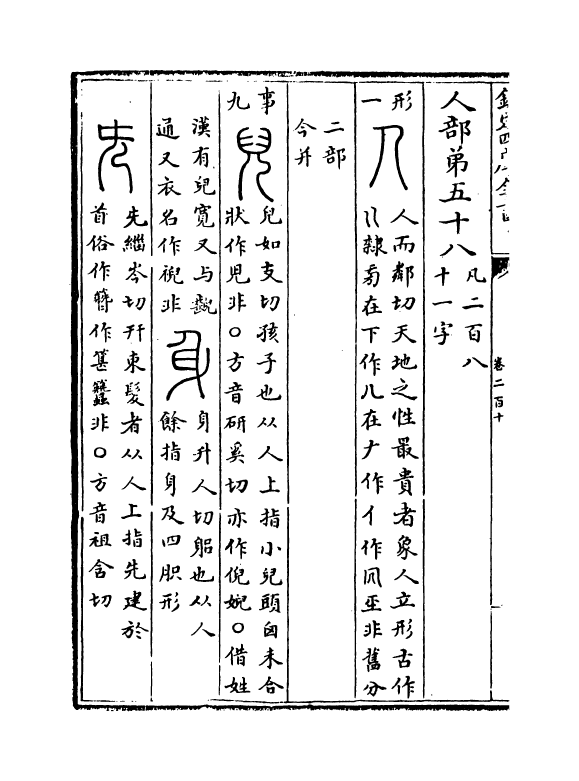 欽定四庫全書
卷二百十
人部第五十八
凡二百八
十一字
形
一
人而鄰切天地之性最貴者象人立形古作
隸㫄在下作儿在𠂇作亻作凨亚非舊分
二部
今并
事
九
兒如支切孩子也从人上指小兒頭囟未合
狀作児非〇方音研奚切亦作倪婗〇借姓
漢有兒寬又与齯
通又衣名作非
身升人切躳也从人
餘指身及四胑形
先緇岑切幵束髮者从人上指先建於
首俗作作非〇方音祖含切